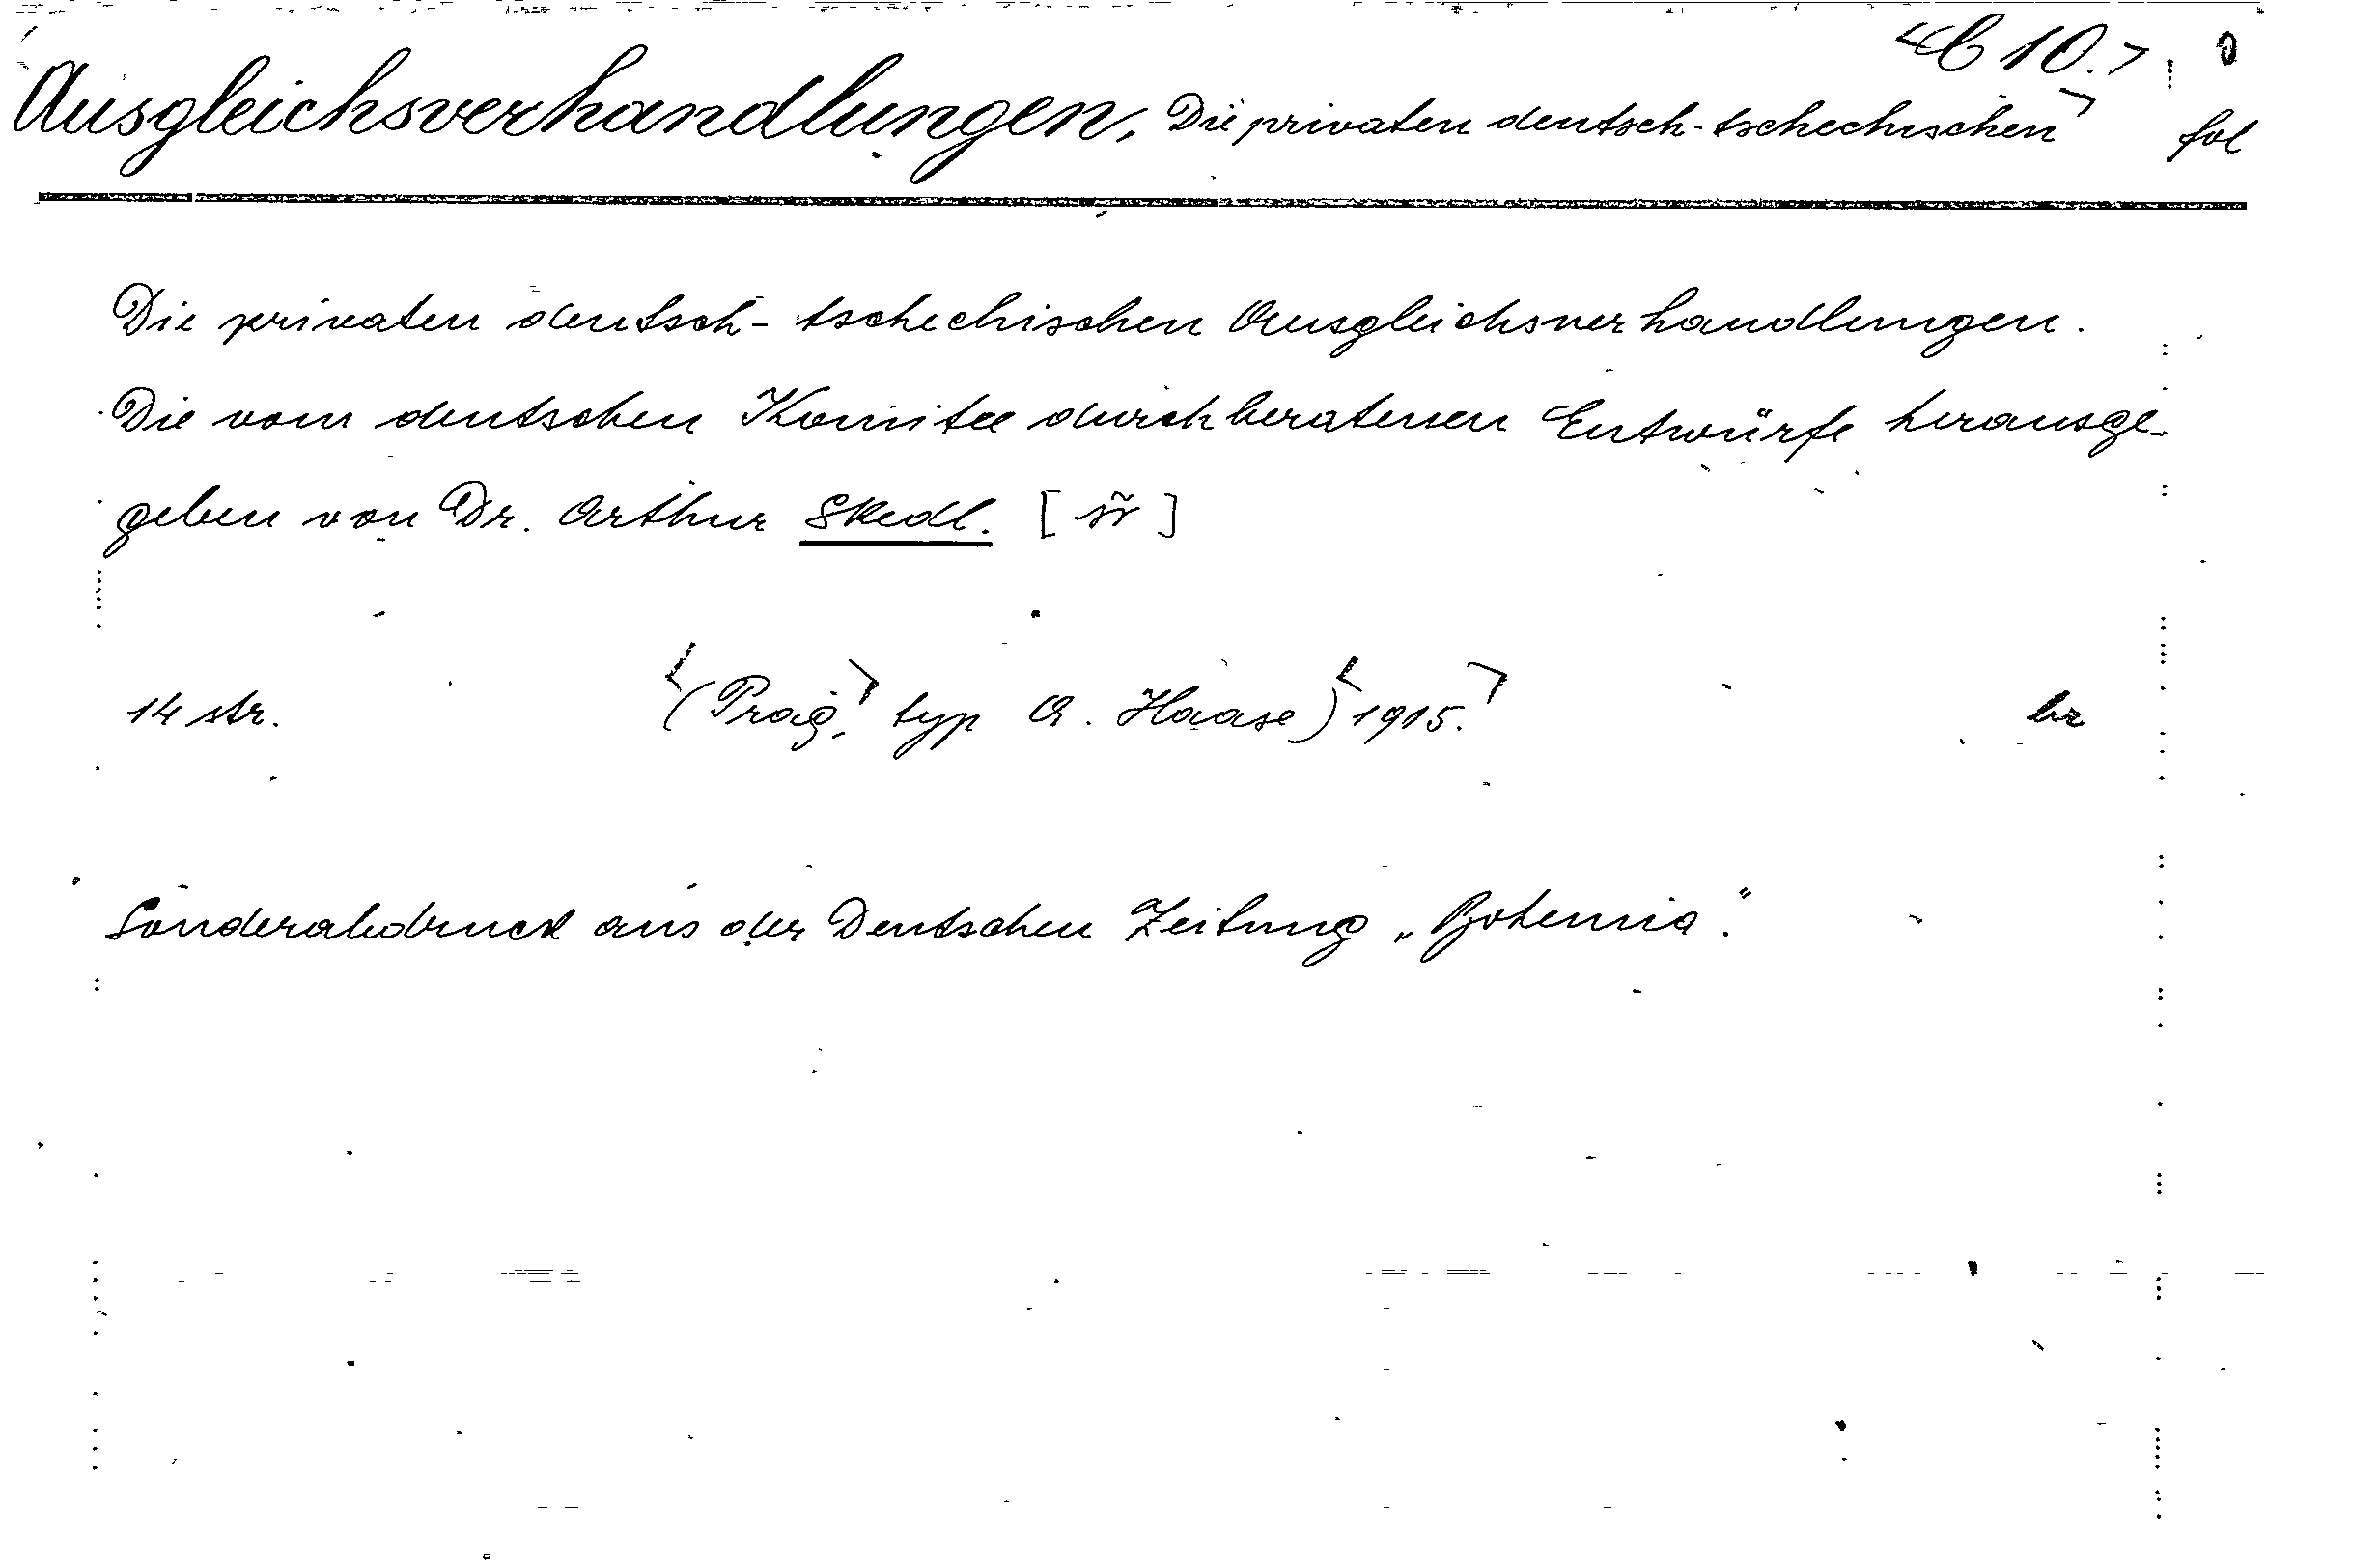 <C 10.>
Ausgleichsverhandlungen, Die privaten deutsch-tschechischen> fol
Die privaten deutsch-tschechischen Ausgleichsverhandlungen.
Die vom deutschen Komitee durchberatenen Entwürfe herausge-
geben von Dr. Arthur Skedl.
14 str. <(Prag,> typ A. Haase)<1915.> br
Sonderabdruck aus der Deutschen Zeitung „Bohemia".